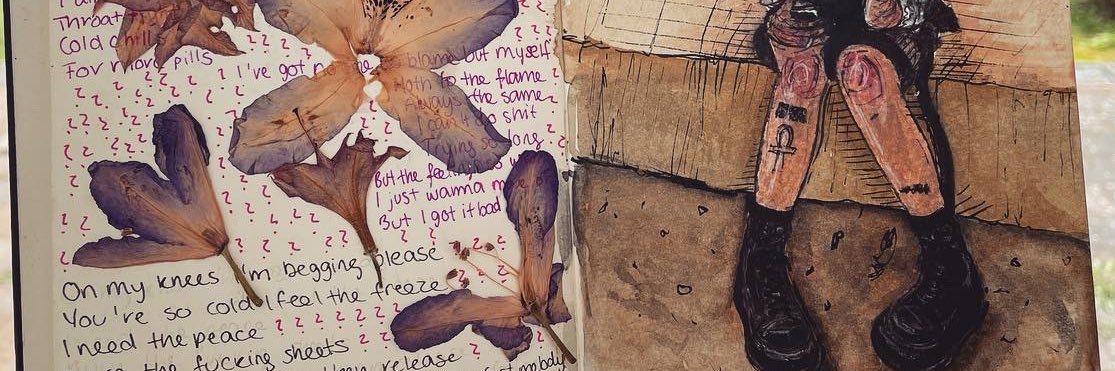 Throat
Cold chills
For more pills
I've got no blame but myself
Moth to the flame
Always the same
shit
trying so long
But the feeling
I just wanna
But I got it bad
On my knees I'm begging please
You're so cold I feel the freeze
I need the peace
the fucking sheets
release
nobody